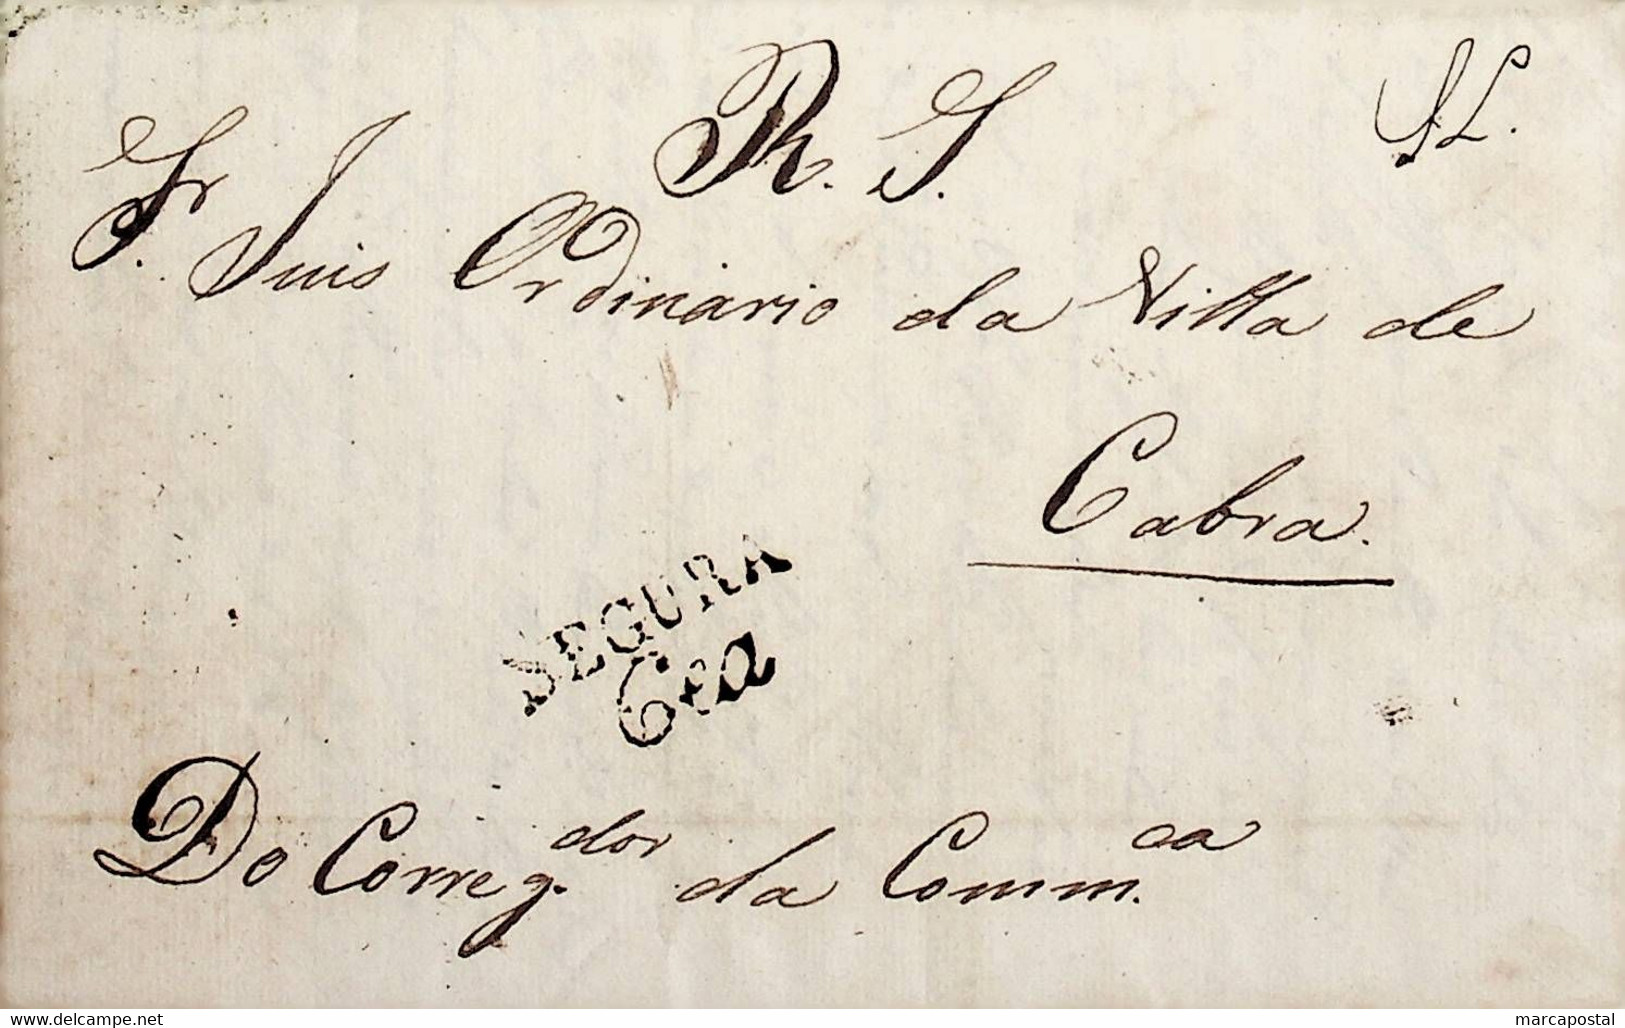 R. S.
Sr. Juis Ordinario da Villa de
Cabra.
SEGURA
6ta
Do Correg.dor da Comm.ca
www.delcampe.net
marcapostal